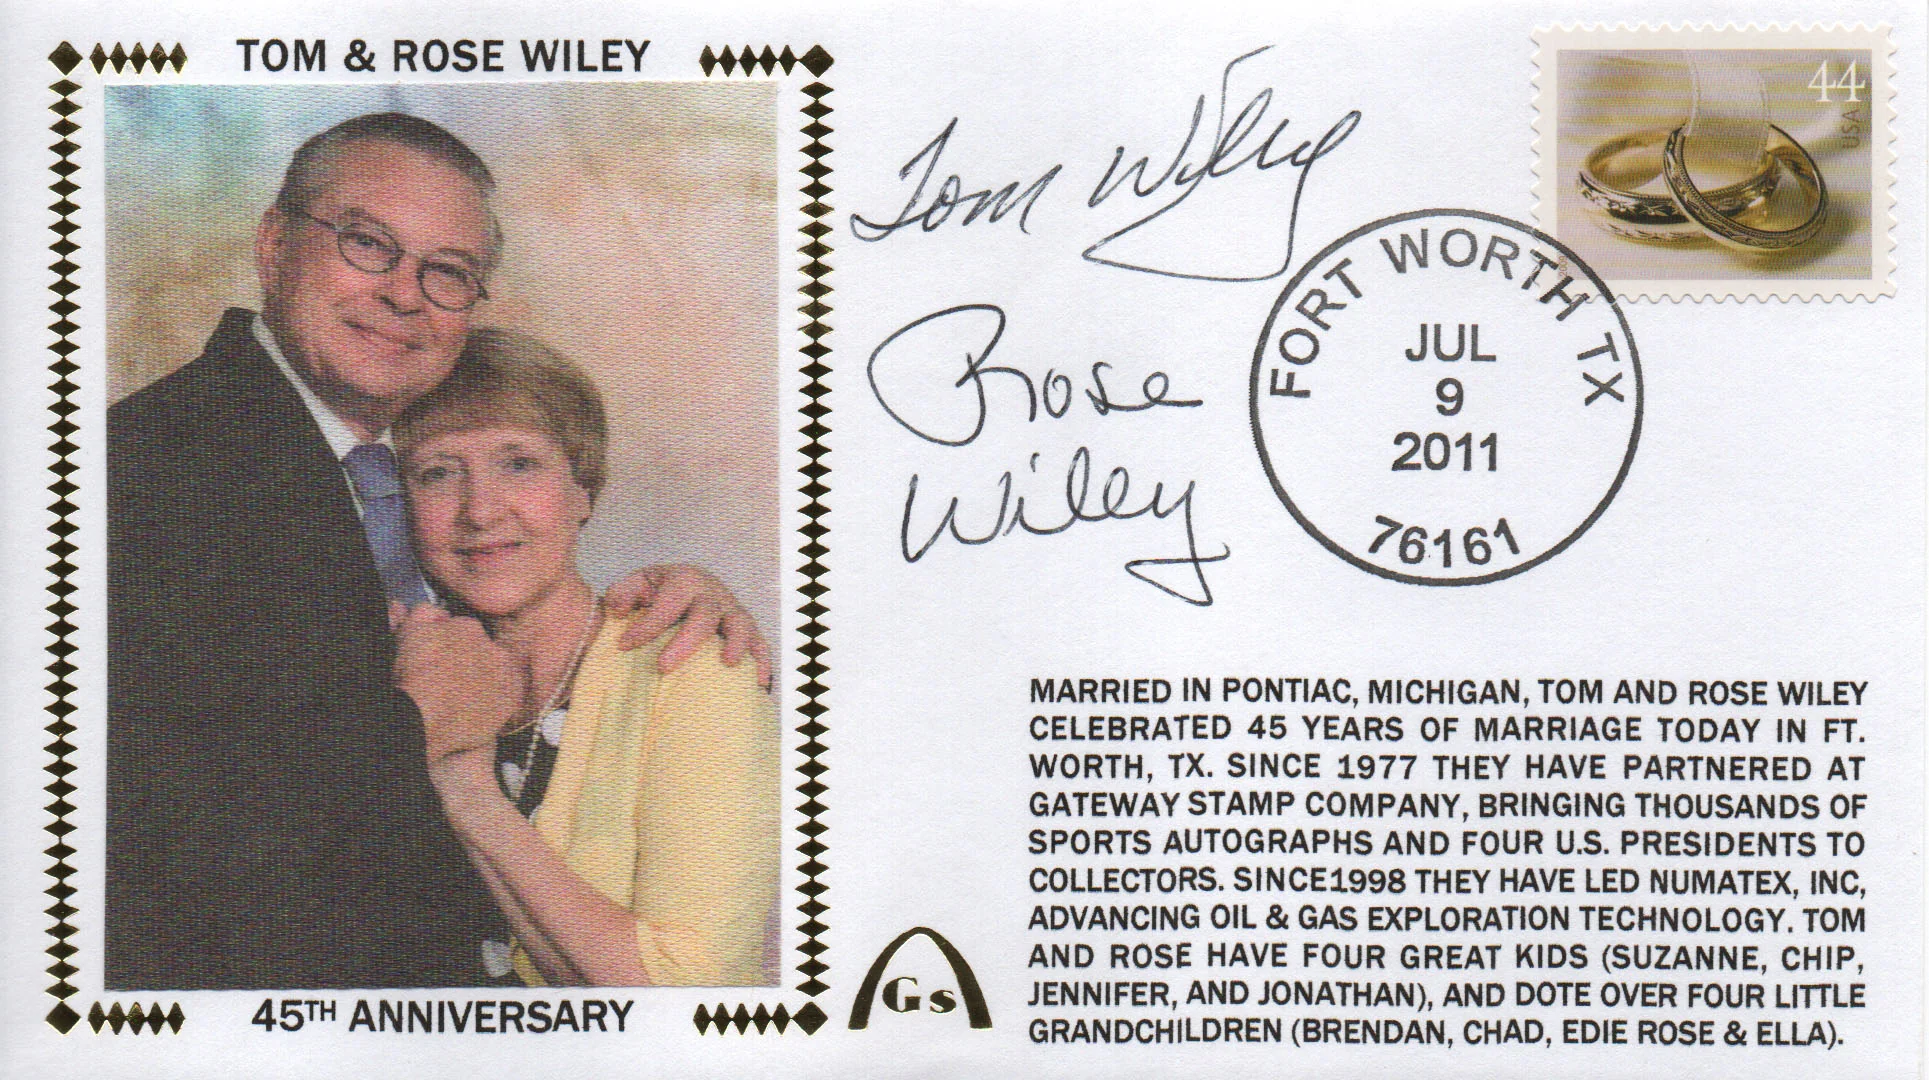 TOM & ROSE WILEY
Tom Wiley
Rose
Wiley
44
USA
FORT WORTH TX
JUL
9
2011
76161
MARRIED IN PONTIAC, MICHIGAN, TOM AND ROSE WILEY
CELEBRATED 45 YEARS OF MARRIAGE TODAY IN FT.
WORTH, TX. SINCE 1977 THEY HAVE PARTNERED AT
GATEWAY STAMP COMPANY, BRINGING THOUSANDS OF
SPORTS AUTOGRAPHS AND FOUR U.S. PRESIDENTS TO
COLLECTORS. SINCE1998 THEY HAVE LED NUMATEX, INC,
ADVANCING OIL & GAS EXPLORATION TECHNOLOGY. TOM
AND ROSE HAVE FOUR GREAT KIDS (SUZANNE, CHIP,
JENNIFER, AND JONATHAN), AND DOTE OVER FOUR LITTLE
GRANDCHILDREN (BRENDAN, CHAD, EDIE ROSE & ELLA).
Gs
45TH ANNIVERSARY